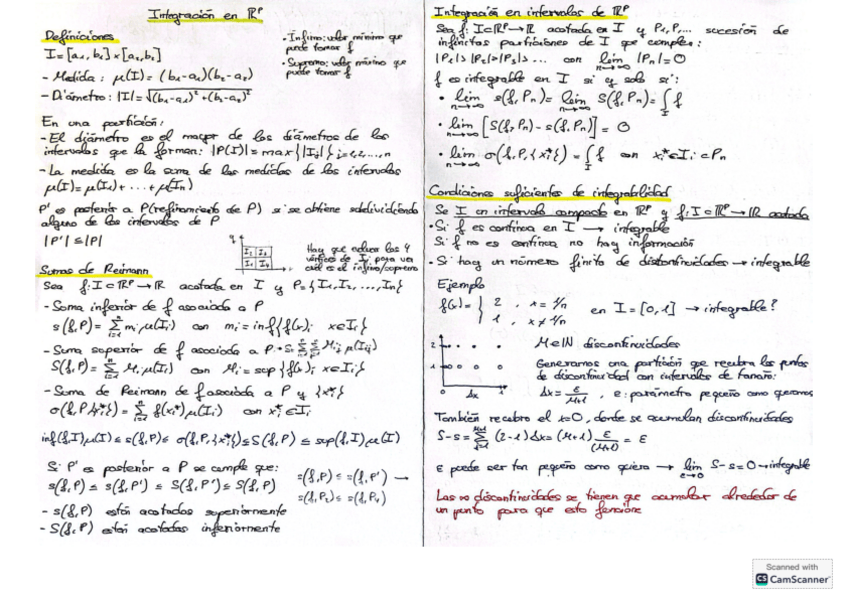 Integración en ℝᵖ
Definiciones
I=[a₁, b₁]×[a₂, b₂]
- Medida: μ(I)=(b₁-a₁)(b₂-a₂)
- Diámetro: |I|=√((b₁-a₁)²+(b₂-a₂)²)
· Ínfimo: valor mínimo que
puede tomar f
· Supremo: valor máximo que
puede tomar f
En una partición:
- El diámetro es el mayor de los diámetros de los
intervalos que la forman: |P(I)|=max{|Iⱼ|} j=1,2,...,n
- La medida es la suma de las medidas de los intervalos
μ(I)=μ(I₁)+...+μ(Iₙ)
P' es posterior a P (refinamiento de P) si se obtiene subdividiendo
alguno de los intervalos de P
|P'|≤|P|
I₁ I₂
I₃ I₄
Hay que evaluar los 4
vértices de Iⱼ para ver
cuál es el ínfimo/supremo
Sumas de Reimann
Sea f: I⊂ℝᵖ→ℝ acotada en I y P={I₁, I₂, ..., Iₙ}
- Soma inferior de f asociada a P
s(f,P)=∑ mᵢ μ(Iᵢ) con mᵢ=inf{f(x); x∈Iᵢ}
- Suma superior de f asociada a P
S(f,P)=∑ Mᵢ μ(Iᵢ) con Mᵢ=sup{f(x); x∈Iᵢ}
- Suma de Reimann de f asociada a P y {xᵢ*}
σ(f,P,{xᵢ*})=∑ f(xᵢ*)μ(Iᵢ) con xᵢ*∈Iᵢ
inf(f,I)μ(I)≤s(f,P)≤σ(f,P,{xᵢ*})≤S(f,P)≤sup(f,I)μ(I)
Si P' es posterior a P se cumple que:
s(f,P)≤s(f,P')≤S(f,P')≤S(f,P)
s(f,P)≤s(f,P') →
- s(f,P) están acotadas superiormente
- S(f,P) están acotadas inferiormente
Integración en intervalos de ℝᵖ
Sea f: I⊂ℝᵖ→ℝ acotada en I y P₁, P₂... sucesión de
infinitas particiones de I que cumplen:
|P₁|>|P₂|>|P₃|>... con lim n→∞ |Pₙ|=0
f es integrable en I si y solo si:
· lim n→∞ s(f,Pₙ)=lim n→∞ S(f,Pₙ)=∫f
· lim n→∞ [S(f,Pₙ)-s(f,Pₙ)]=0
· lim n→∞ σ(f,P,{xᵢ*})=∫f con xᵢ*∈Iᵢ⊂Pₙ
Condiciones suficientes de integrabilidad
Se I un intervalo compacto en ℝᵖ y f: I⊂ℝᵖ→ℝ acotada
· Si f es continua en I → integrable
Si f no es continua no hay información
· Si hay un número finito de discontinuidades → integrable
Ejemplo
f(x)={ 2, x=1/n
1, x≠1/n
en I=[0,1] → integrable?
M∈ℕ discontinuidades
Generamos una partición que recubra los puntos
de discontinuidad con intervalos de tamaño:
Δx=ε/(M+1), ε: parámetro pequeño como queramos
2
1
0 Δx 1
También recubro el x=0, donde se acumulan discontinuidades
S-s=∑(2-1)Δx=(M+1) ε/(M+1)=ε
ε puede ser tan pequeño como quiera → lim ε→0 S-s=0→integrable
Las ∞ discontinuidades se tienen que acumular alrededor de
un punto para que esto funcione
Scanned with
CS CamScanner